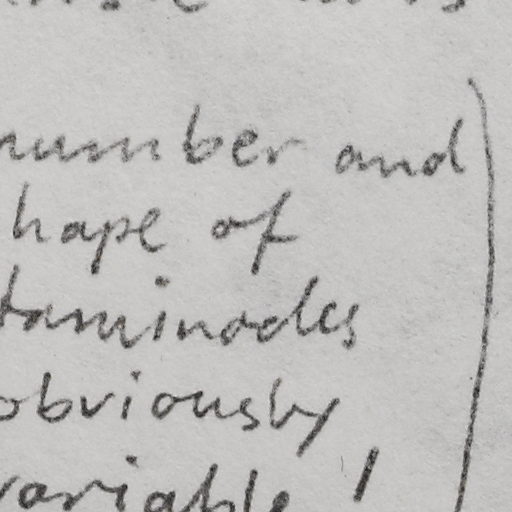 number and
hape of
taminodes
obviously
variable!